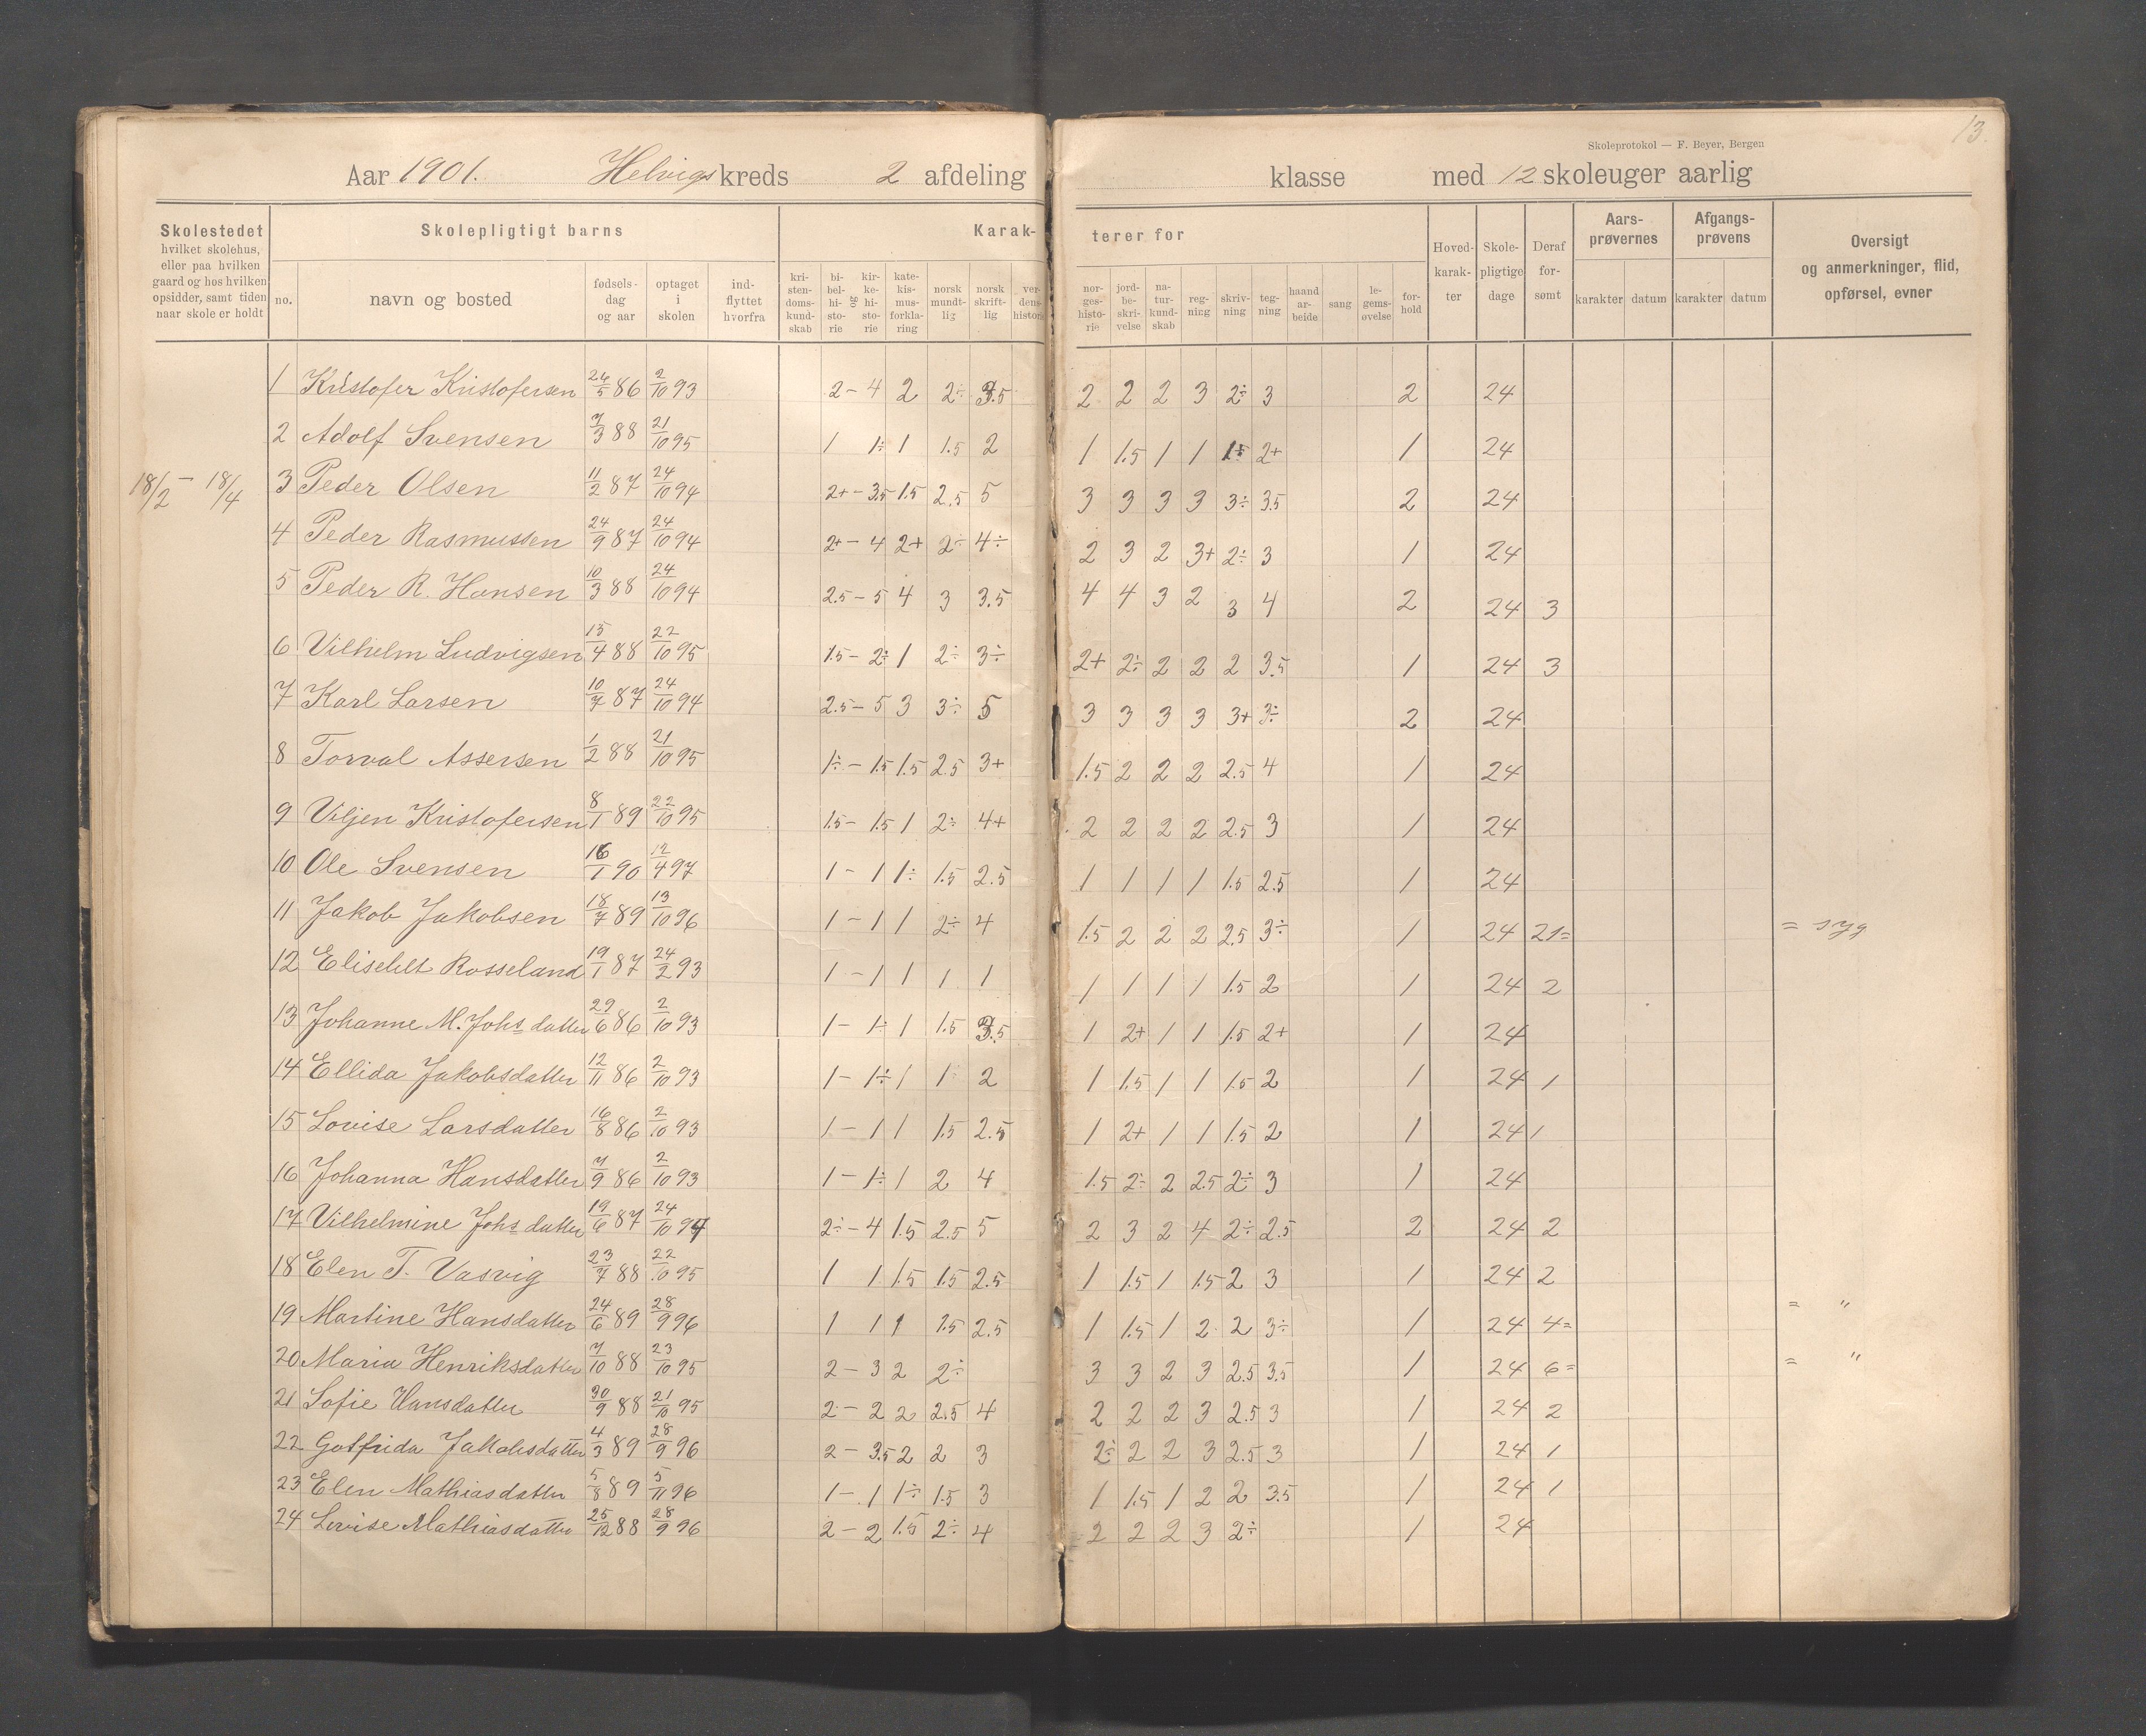 13.
Skoleprotokol — F. Beyer, Bergen
Aar 1901. Helvigs kreds 2 afdeling klasse med 12 skoleuger aarlig
Skolestedet
hvilket skolehus,
eller paa hvilken
gaard og hos hvilken
opsidder, samt tiden
naar skole er holdt
Skolepligtigt barns
no.
navn og bosted
fødsels-
dag
og aar
optaget
i
skolen
ind-
flyttet
hvorfra
Karak-
terer for
kri-
sten-
doms-
kund-
skab
bi-
bel-
hi-
sto-
rie
og
kir-
ke-
hi-
sto-
rie
kate-
kis-
mus-
forkla-
ring
norsk
mundt-
lig
norsk
skrift-
lig
ver-
dens-
historie
nor-
ges-
histo-
rie
jord-
be-
skri-
velse
na-
tur-
kund-
skab
reg-
ning
skriv-
ning
teg-
ning
haand
ar-
beide
sang
le-
gems-
øvelse
for-
hold
Hoved-
karak-
ter
Skole-
pligtige
dage
Deraf
for-
sømt
Aars-
prøvernes
karakter datum
Afgangs-
prøvens
karakter datum
Oversigt
og anmerkninger, flid,
opførsel, evner
18/2 - 18/4
1 Kristofer Kristofersen 26/5 86 2/10 93 2 - 4 2 2÷ 3.5 2 2 2 3 2÷ 3 2 24
2 Adolf Svensen 7/3 88 21/10 95 1 1÷ 1 1.5 2 1 1.5 1 1 1.5 2+ 1 24
3 Peder Olsen 11/2 87 24/10 94 2+ - 3.5 1.5 2.5 5 3 3 3 3 3÷ 3.5 2 24
4 Peder Rasmussen 24/9 87 24/10 94 2+ - 4 2+ 2÷ 4÷ 2 3 2 3+ 2÷ 3 1 24
5 Peder R. Hansen 10/3 88 24/10 94 2.5 - 5 4 3 3.5 4 4 3 2 3 4 2 24 3
6 Vilhelm Ludvigsen 15/4 88 22/10 95 1.5 - 2÷ 1 2÷ 3÷ 2+ 2÷ 2 2 2 3.5 1 24 3
7 Karl Larsen 10/7 87 24/10 94 2.5 - 5 3 3÷ 5 3 3 3 3 3+ 3÷ 2 24
8 Torval Assersen 1/2 88 21/10 95 1÷ - 1.5 1.5 2.5 3+ 1.5 2 2 2 2.5 4 1 24
9 Viljen Kristofersen 8/1 89 22/10 95 1.5 - 1.5 1 2÷ 4+ 2 2 2 2 2.5 3 1 24
10 Ole Svensen 16/1 90 12/4 97 1 - 1 1÷ 1.5 2.5 1 1 1 1 1.5 2.5 1 24
11 Jakob Jakobsen 18/7 89 13/10 96 1 - 1 1 2÷ 4 1.5 2 2 2 2.5 3÷ 1 24 21= = syg
12 Elisebet Rosseland 19/1 87 24/2 93 1 - 1 1 1 1 1 1 1 1 1.5 2 1 24 2
13 Johanne M. Johs datter 29/6 86 2/10 93 1 - 1÷ 1 1.5 3.5 1 2+ 1 1 1.5 2+ 1 24
14 Ellida Jakobsdatter 12/11 86 2/10 93 1 - 1÷ 1 1 2 1 1.5 1 1 1.5 2 1 24 1
15 Lovise Larsdatter 16/8 86 2/10 93 1 - 1 1 1.5 2.5 1 2+ 1 1 1.5 2 1 24 1
16 Johanna Hansdatter 7/9 86 2/10 93 1 - 1÷ 1 2 4 1.5 2÷ 2 2.5 2÷ 3 1 24
17 Vilhelmine Johs datter 19/6 87 24/10 94 2÷ - 4 1.5 2.5 5 2 3 2 4 2÷ 2.5 2 24 2
18 Elen T. Vasvig 23/7 88 22/10 95 1 1 1.5 1.5 2.5 1 1.5 1 1.5 2 3 1 24 2
19 Martine Hansdatter 24/6 89 28/9 96 1 1 1 1.5 2.5 1 1.5 1 2 2 3÷ 1 24 4= = "
20 Maria Henriksdatter 7/10 88 23/10 95 2 - 3 2 2÷ 3 3 2 3 2.5 3.5 1 24 6= = "
21 Sofie Hansdatter 30/9 88 21/10 95 2 - 2 2 2.5 4 2 2 2 3 2.5 3 1 24 2
22 Gotfrida Jakobsdatter 4/3 89 28/9 96 2 - 3.5 2 2 3 2÷ 2 2 3 2.5 3 1 24 1
23 Elen Mathiasdatter 5/8 89 5/11 96 1 - 1 1÷ 1.5 3 1 1.5 1 2 2 3.5 1 24 1
24 Lovise Mathiasdatter 25/12 88 28/9 96 2 - 2 1.5 2÷ 4 2 2 2 3 2÷ 1 24